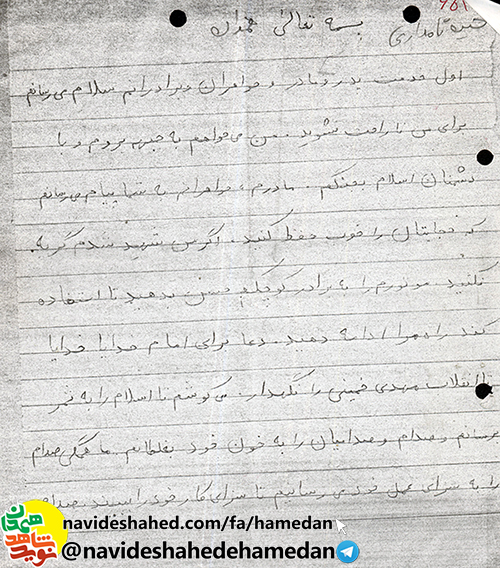 بسمه تعالی همدان
اول خدمت پدر و مادر و خواهران و برادرانم سلام می رسانم
برای من ناراحت نشوید. من می خواهم به جبهه بروم و با
دشمنان اسلام بجنگم. مادرم، خواهرانم به شما پیام می رسانم
که حجابتان را خوب حفظ کنید. اگر من شهید شدم گریه
نکنید. موتورم را به برادر کوچک من بدهید تا استفاده
کند راه مرا ادامه دهید. دعا برای امام خدایا خدایا
تا انقلاب مهدی خمینی را نگهدار. می کوشم تا اسلام را به ثمر
برسانم و صدام و صدامیان را به خون خود بغلطانم. ما همگی صدام
را به سزای عمل خود می رسانیم تا سزای کار خود را ببیند. صدام
navideshahed.com/fa/hamedan
@navideshahedehamedan
نوید شاهد همدان